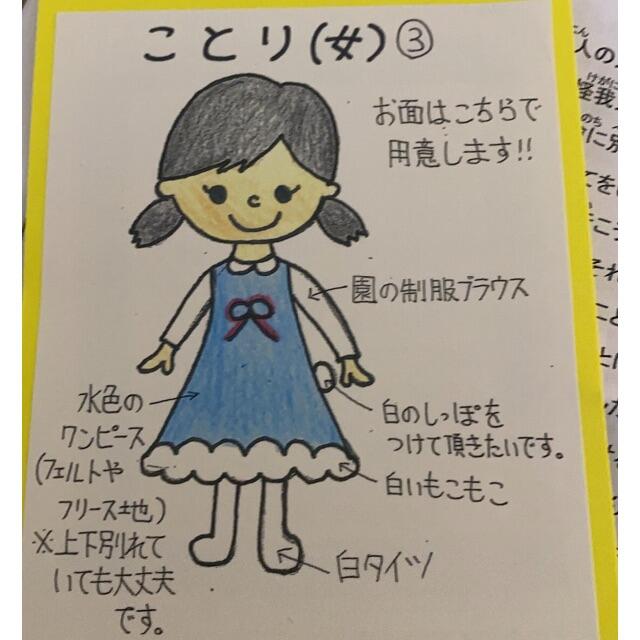 ことり(女)③
お面はこちらで
用意します!!
園の制服ブラウス
水色の
ワンピース
(フェルトや
フリース地)
※上下別れて
いても大丈夫
です。
白のしっぽを
つけて頂きたいです。
白いもこもこ
白タイツ
人の
けが
怪我
のち
に